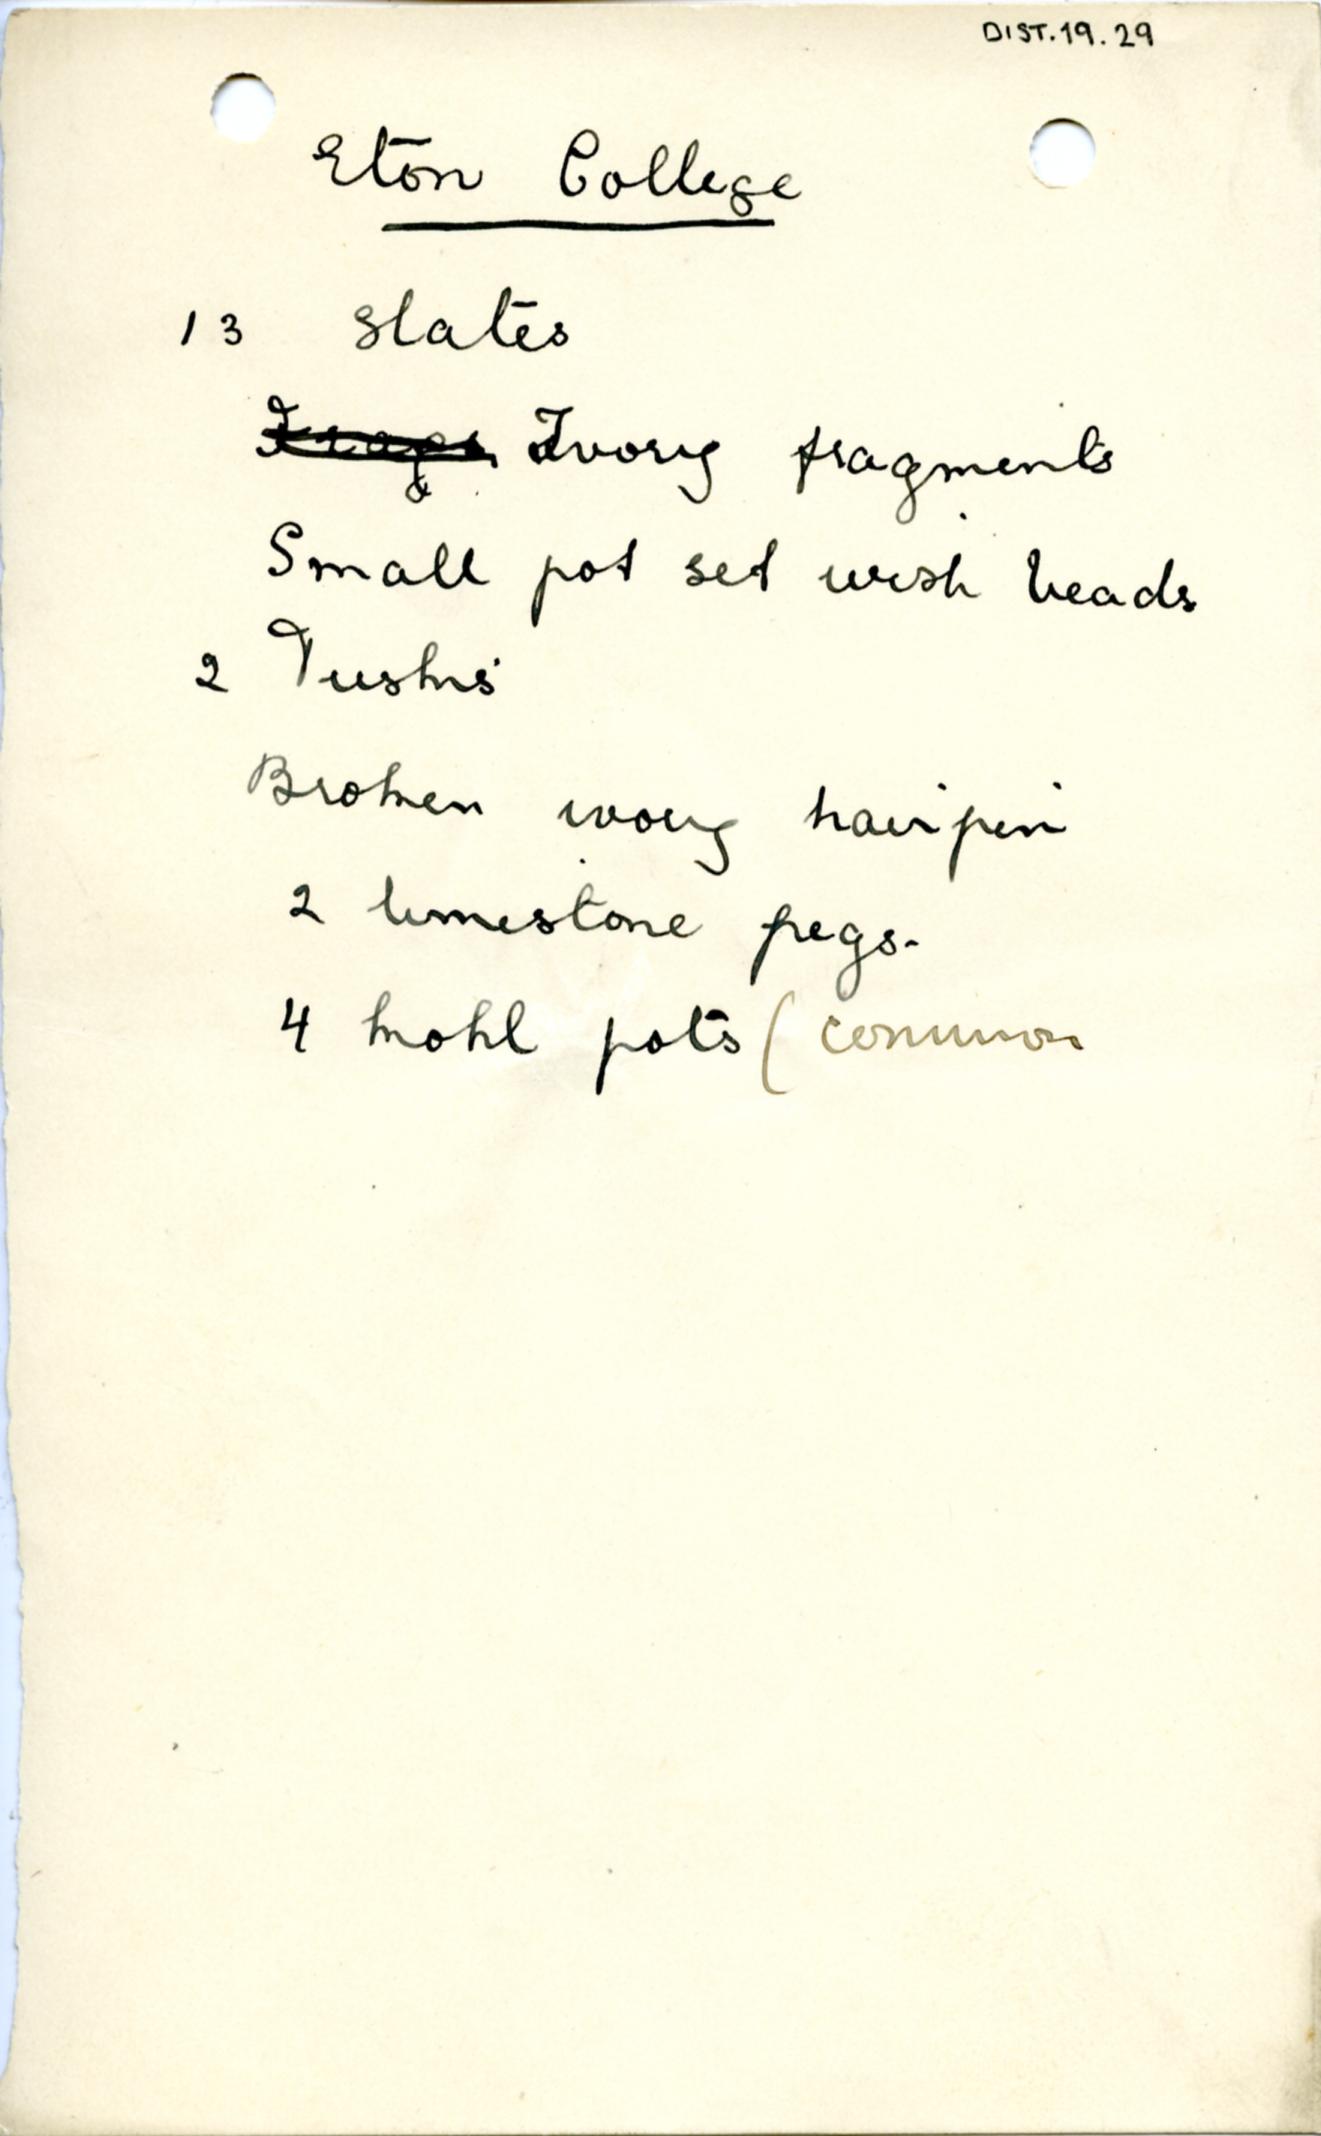 DIST.19.29
Eton College
13 slates
Frags Ivory fragments
Small pot set with beads
2 Tusks
Broken ivory hairpin
2 limestone pegs.
4 kohl pots (common